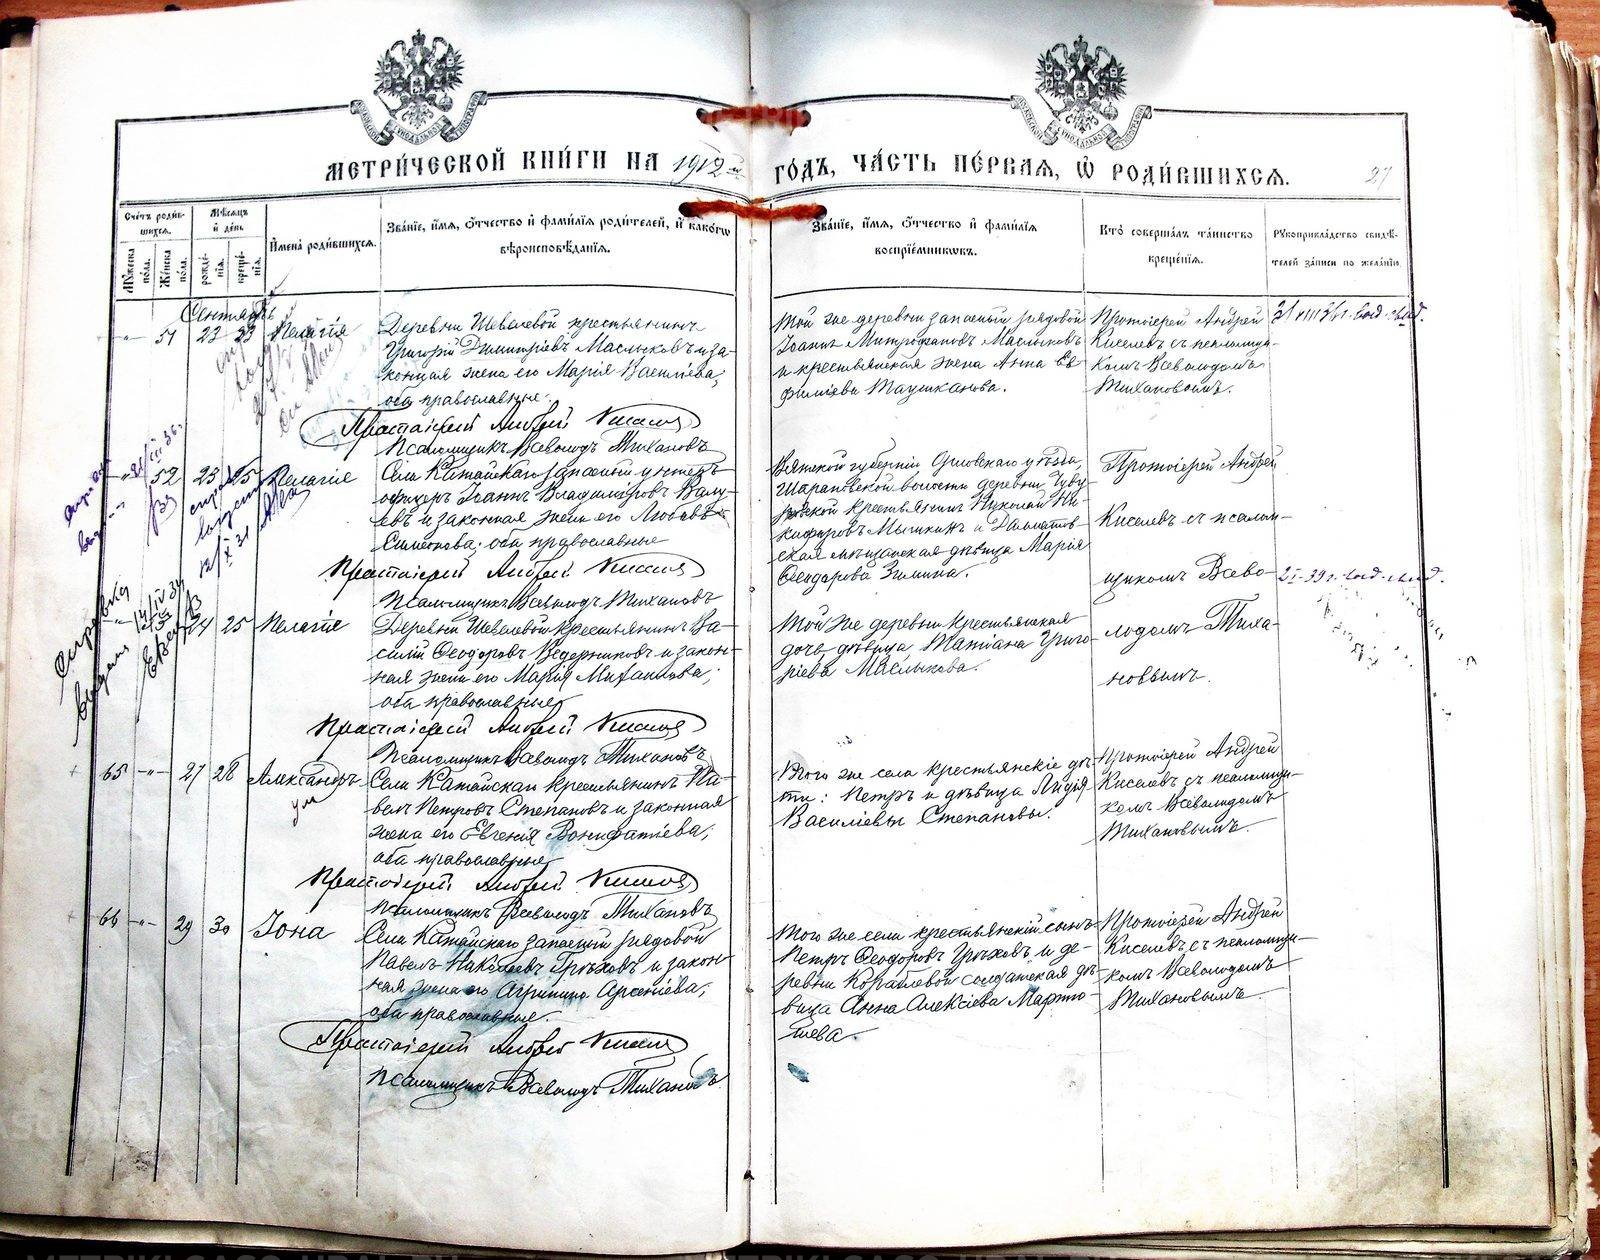 МЕТРИ́ЧЕСКОЙ КНИ́ГИ НА 1912 й ГОДЪ, ЧА́СТЬ ПЕ́РВАЯ, Ѿ РОДИ́ВШИХСЯ.
27
Сче́тъ роди́в-
шихся.
Мꙋжеска по́ла.
Же́нска по́ла.
Мѣ́сяцъ и де́нь
рожде́-
нія.
креще́-
нія.
И́мена роди́вшихся.
Зва́ніе, и́мя, о́тчество и фами́лія роди́телей, и како́гω
вѣроисповѣ́данія.
Зва́ніе, и́мя, о́тчество и фами́лія
воспріе́мниковъ.
Кто́ соверша́лъ та́инство
креще́нія.
Рꙋкоприкла́дство свидѣ́-
телей за́писи по жела́нію.
Сентябрь
51 23 23 Пелагія
Деревни Шевелевой крестьянинъ
Григорій Димитріевъ Маслыковъ и за-
конная жена его Марія Васильева,
оба православные.
Протоіерей Андрей Киселев
Псаломщикъ Всеволодъ Тихановъ
Той же деревни запасный рядовой
Іоаннъ Митрофановъ Маслыковъ
и крестьянская жена Анна Ев-
фиміева Таушканова.
Протоіерей Андрей
Киселевъ съ псаломщи-
комъ Всеволодомъ
Тихановымъ.
52 23 25 Пелагія
Села Катайскаго запасный унтеръ
офицеръ Іоаннъ Владиміровъ Валу-
евъ и законная жена его Любовь
Симеонова; оба православные
Протоіерей Андрей Киселев
Псаломщикъ Всеволодъ Тихановъ
Вятской губерніи, Орловскаго уѣзда,
Шарановской волости деревни
крестьянинъ Николай Ни-
кифоровъ Мышкинъ и Далматов-
ская мѣщанская дѣвица Марія
Ѳеодорова Зимина.
Протоіерей Андрей
Киселевъ съ псалом-
щикомъ Всево-
лодомъ Тиха-
новымъ.
24 25 Пелагія
Деревни Шевелевой крестьянинъ Ва-
силій Ѳеодоровъ Ведерниковъ и закон-
ная жена его Марія Михаилова;
оба православные
Протоіерей Андрей Киселев
Псаломщикъ Всеволодъ Тихановъ
Той же деревни крестьянская
дочь дѣвица Татіана Григо-
ріева Маслыкова.
65 27 28 Александръ
ум
Села Катайскаго крестьянинъ Па-
велъ Петровъ Степановъ и законная
жена его Евгенія Вонифатіева;
оба православные
Протоіерей Андрей Киселев
Псаломщикъ Всеволодъ Тихановъ
Того же села крестьянскіе дѣ-
ти: Петръ и дѣвица Лидія
Василіевы Степановы.
Протоіерей Андрей
Киселевъ съ псаломщи-
комъ Всеволодомъ
Тихановымъ.
66 29 30 Іона
Села Катайскаго запасный рядовой
Павелъ Николаевъ Грѣховъ и закон-
ная жена его Агриппина Арсеніева;
оба православные.
Протоіерей Андрей Киселев
Псаломщикъ Всеволодъ Тихановъ
Того же села крестьянскій сынъ
Петръ Ѳеодоровъ Грѣховъ и де-
ревни Кораблевой солдатская дѣ-
вица Анна Алексіева Марто-
Протоіерей Андрей
Киселевъ съ псаломщи-
комъ Всеволодомъ
Тихановымъ.
Справка
выдана